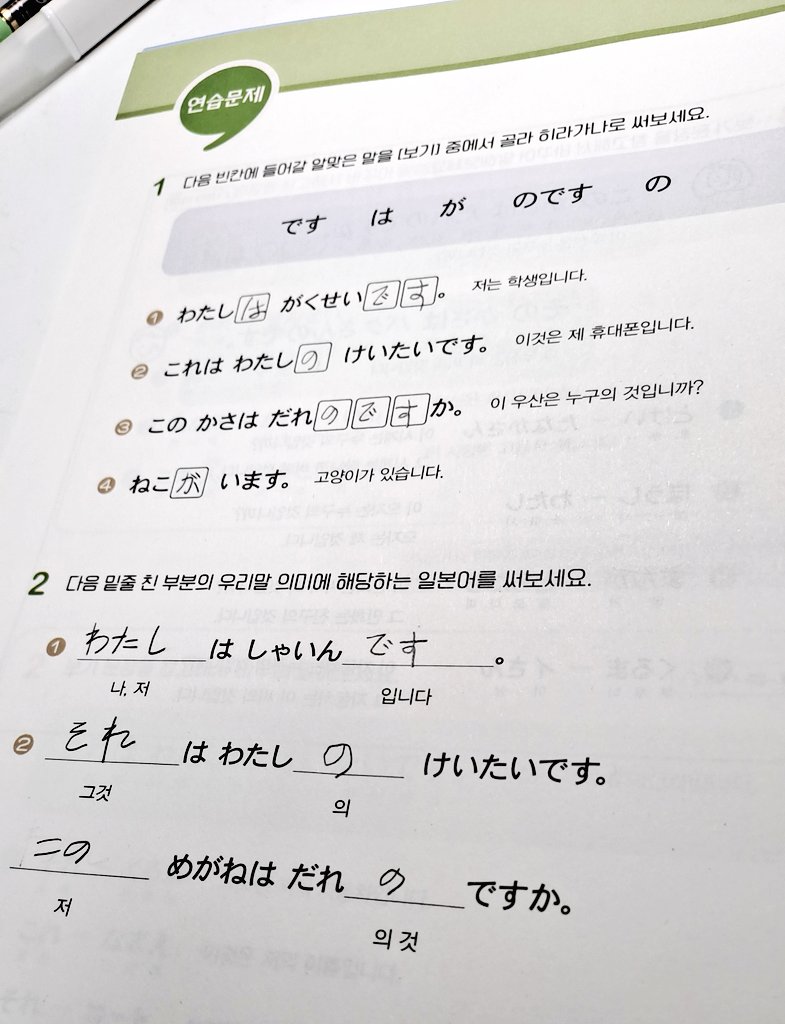 연습문제
1 다음 빈칸에 들어갈 알맞은 말을 [보기] 중에서 골라 히라가나로 써보세요.
です は が のです の
❶ わたし は がくせい です。 저는 학생입니다.
❷ これは わたし の けいたいです。 이것은 제 휴대폰입니다.
❸ この かさは だれ のです か。 이 우산은 누구의 것입니까?
❹ ねこ が います。 고양이가 있습니다.
2 다음 밑줄 친 부분의 우리말 의미에 해당하는 일본어를 써보세요.
❶ わたし は しゃいん です 。
나, 저 입니다
❷ それ は わたし の けいたいです。
그것 의
この めがねは だれ の ですか。
저 의 것